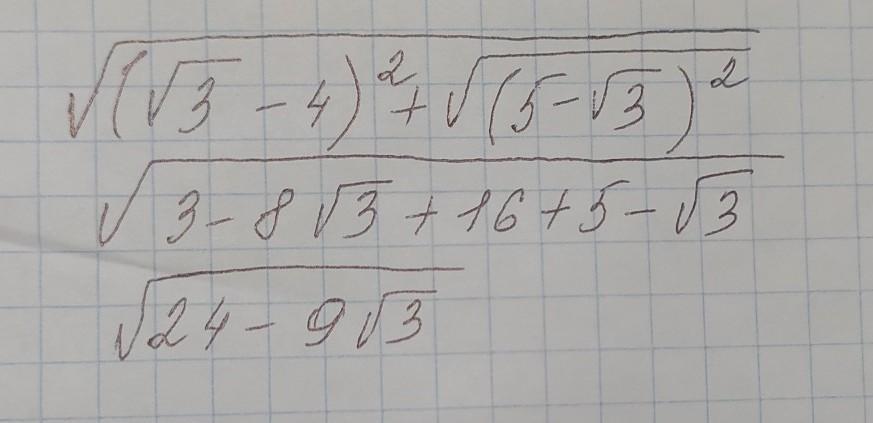 √((√3 - 4)² + √((5 - √3)²))
√(3 - 8√3 + 16 + 5 - √3)
√(24 - 9√3)